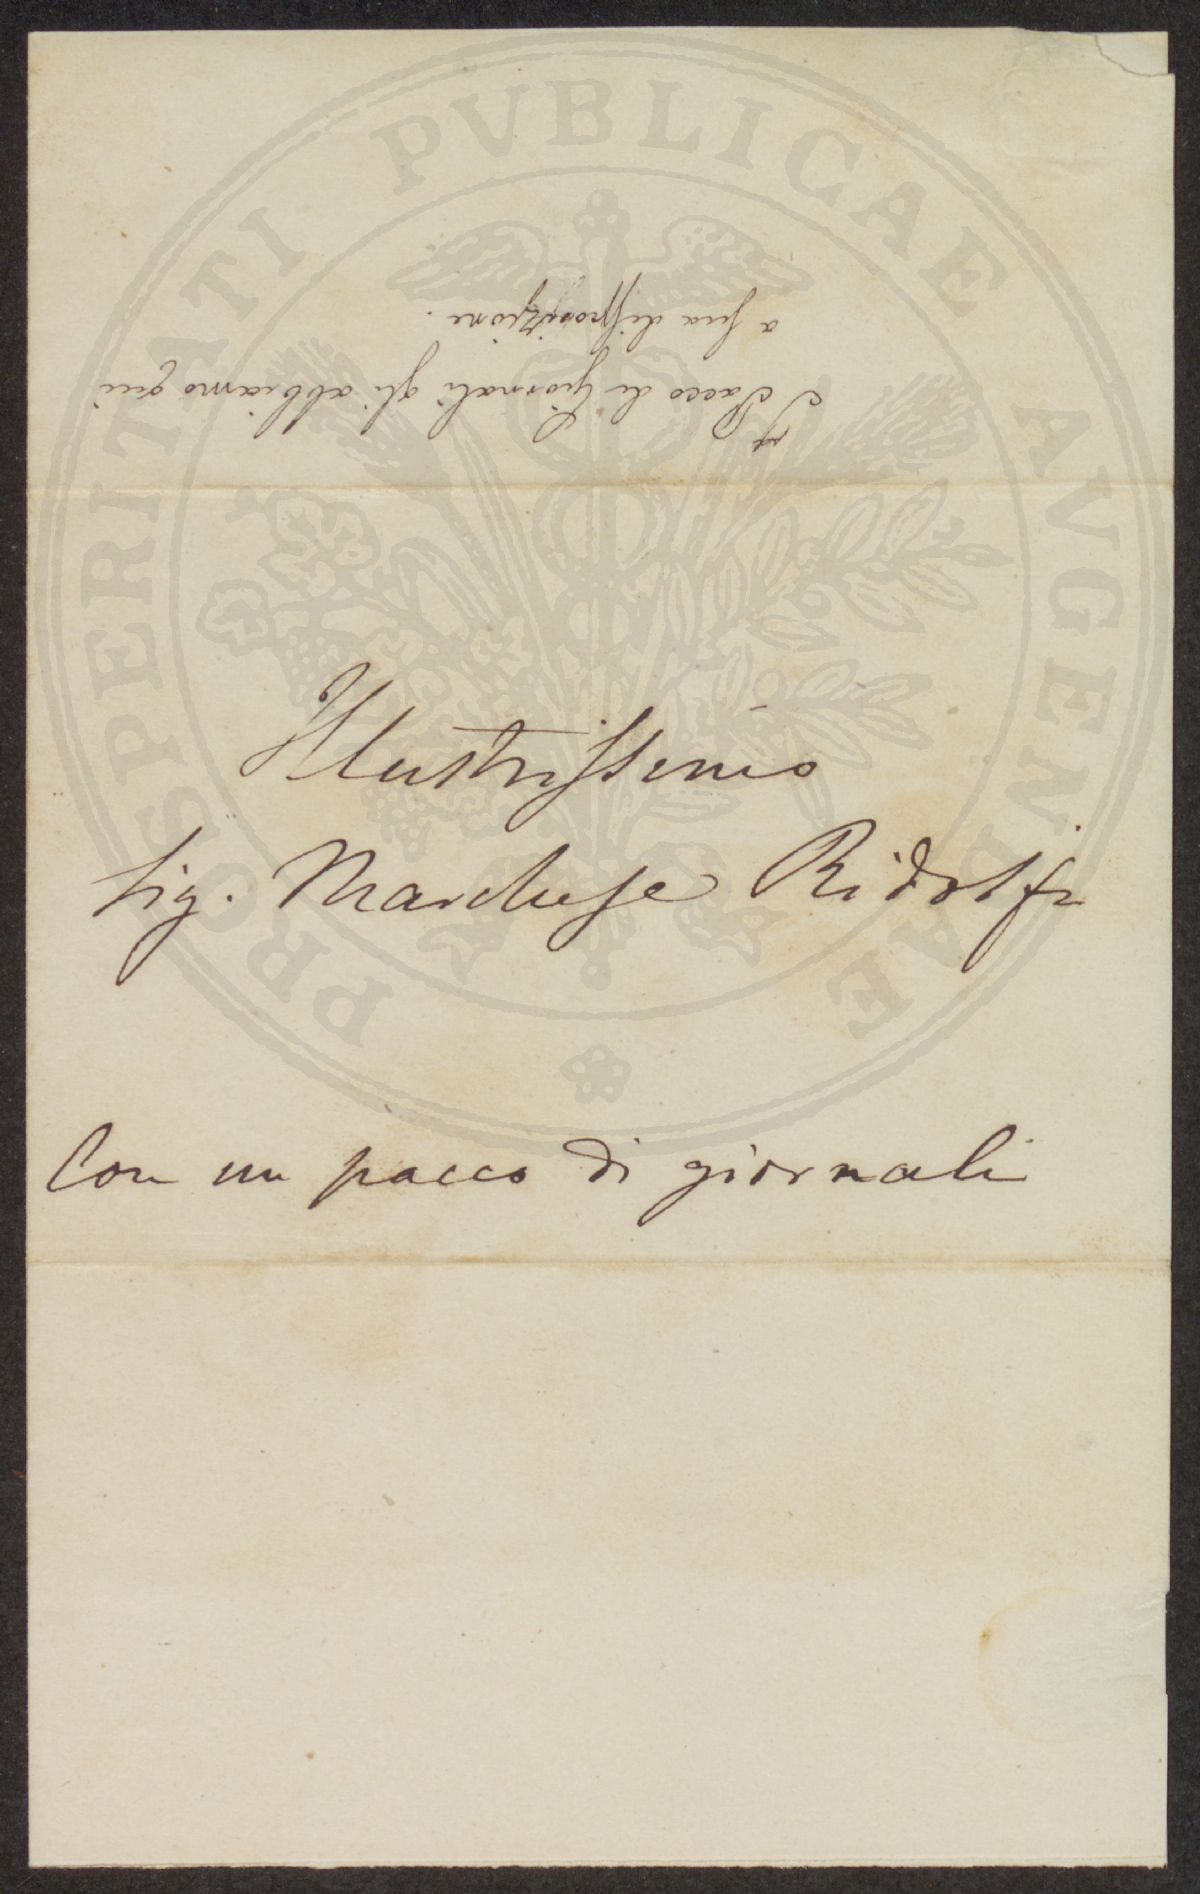 Il Pacco di Giornali gli abbiamo qui
a sua disposizione.
Illustrissimo
Sig. Marchese Ridolfi
Con un pacco di giornali
PROSPERITATI PVBLICAE AVGENDAE